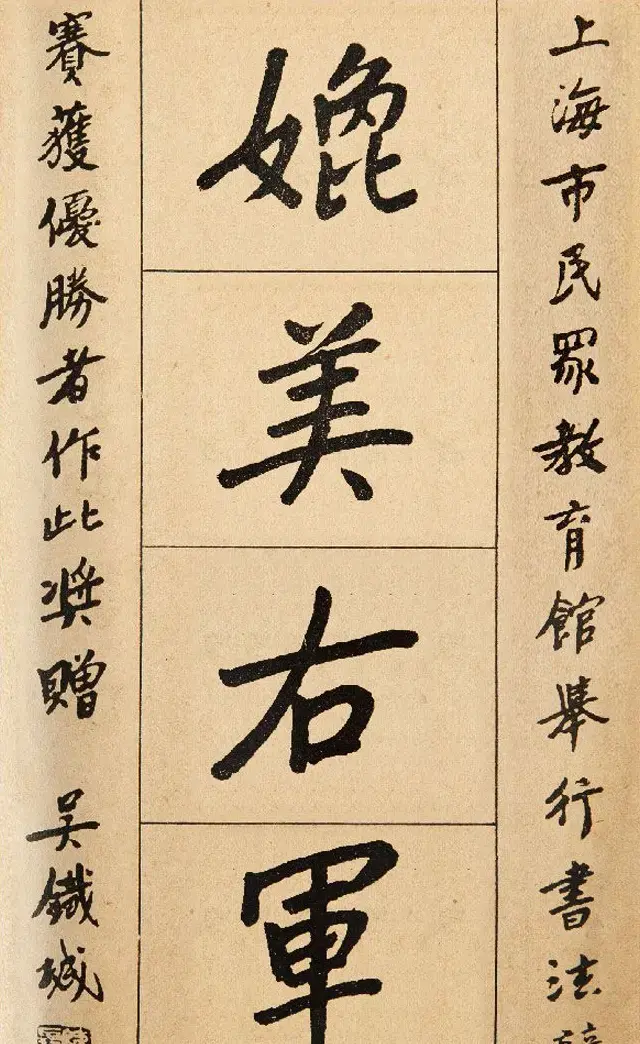 上海市民眾教育館舉行書法
媲美右軍
賽獲優勝者作此奨贈
吴鐵城